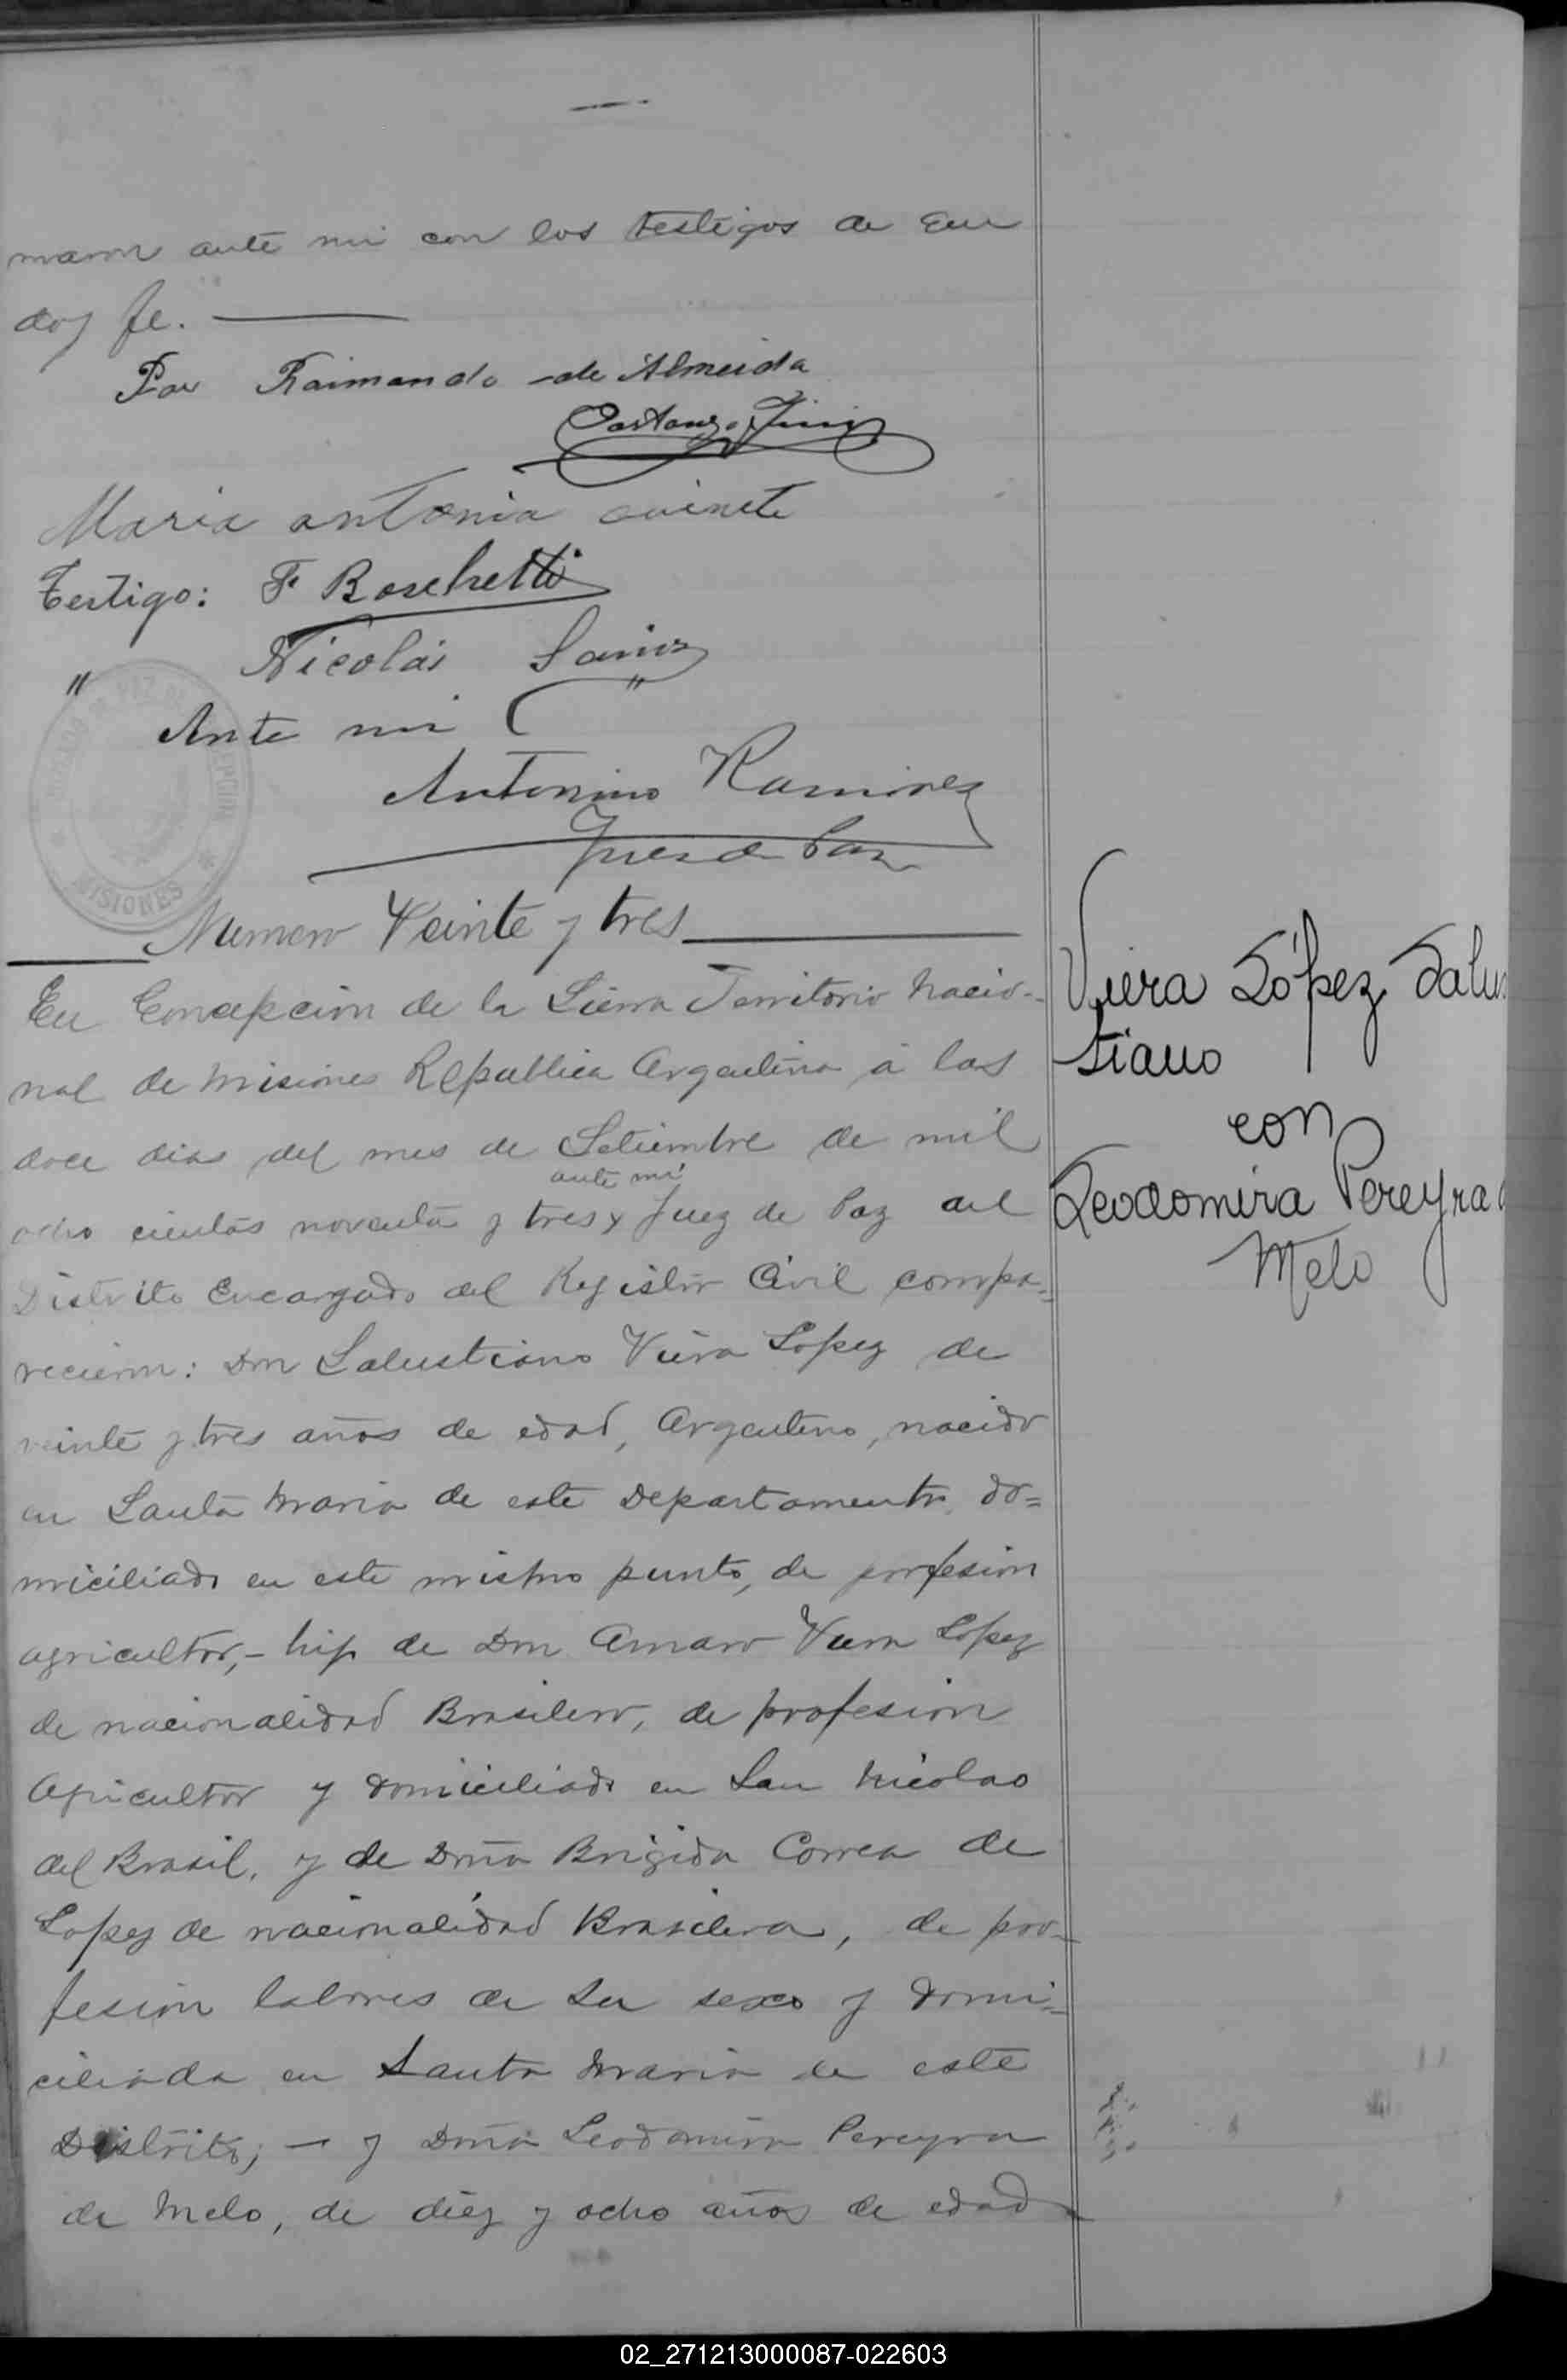 maron ante mi con los testigos de que
doy fe.
Por Raimando de Almeida
Maria antonia
Testigo: F Boschetti
" Nicolás
Ante mi
Antonino Ramirez
Juez de Paz
MISIONES
Numero Veinte y tres
En Concepcion de la Sierra Territorio Nacio-
nal de Misiones Republica Argentina á los
doce dias del mes de Setiembre de mil
ante mi
ocho cientos noventa y tres x Juez de Paz del
Distrito Encargado del Registro Civil compa-
recieron: Don Salustiano Viera Lopez de
veinte y tres años de edad, Argentino, nacido
en Santa Maria de este Departamento, do=
miciliado en este mismo punto, de profesion
agricultor, - hijo de Don Amaro Viera Lopez
de nacionalidad Brasilero, de profesion
Agricultor y domiciliado en San Nicolao
del Brasil, y de Doña Brigida Correa de
Lopez de nacionalidad Brasilera, de pro-
fesion labores de su sexo y domi-
ciliada en Santa Maria de este
Distrito; - y Doña Leodomira Pereyra
de Melo, de diez y ocho años de edad
Viera López Salus
tiano
con
Leodomira Pereyra d
Melo
02_271213000087-022603